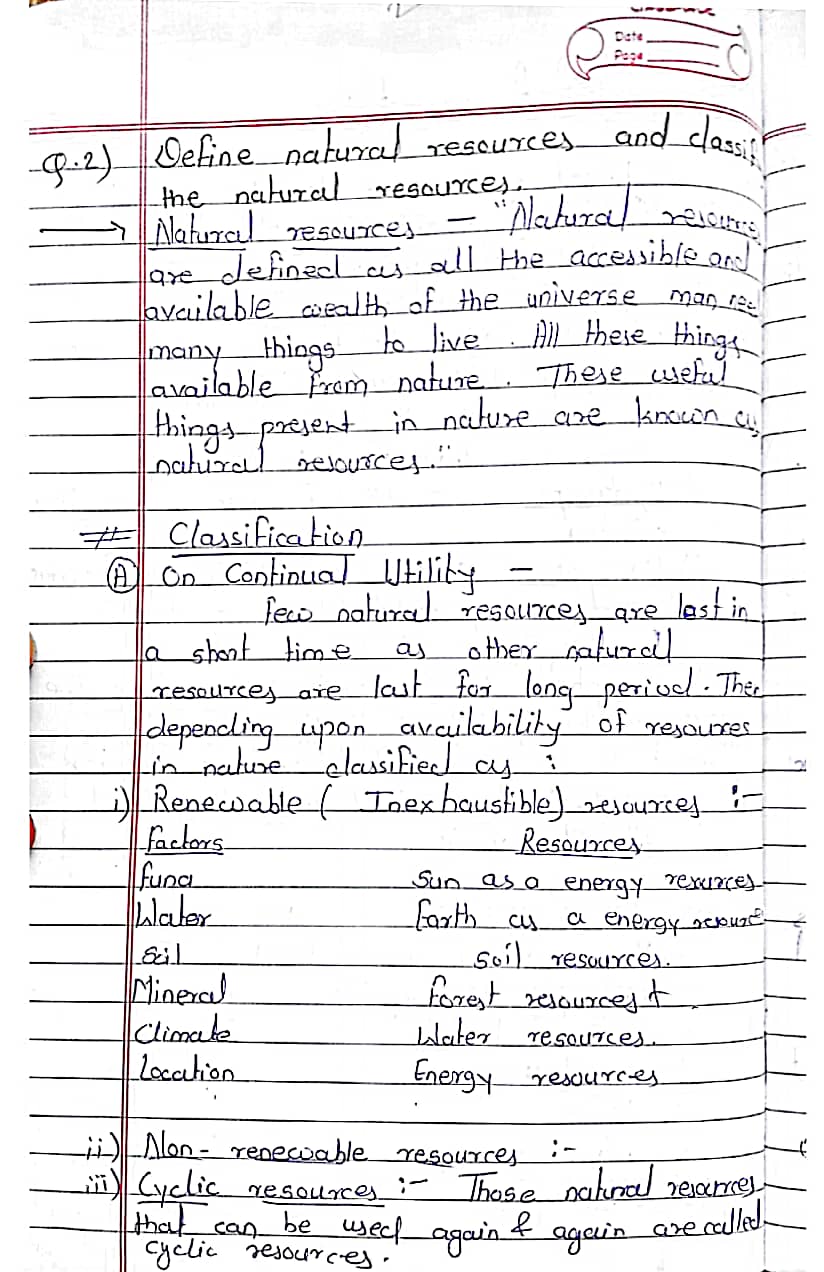 Date
Page
Q.2) Define natural resources and classif
the natural resources.
→ Natural resources – "Natural resources
are defined as all the accessible and
available wealth of the universe man
many things to live. All these things
available from nature. These useful
things present in nature are known as
natural resources."
# Classification
(A) On Continual Utility –
few natural resources are last in
a short time as other natural
resources are last for long period.
depending upon availability of resources
in nature classified as :
i) Renewable (Inexhaustible) resources :-
factors Resources
Sun as a energy resources
Water Earth as a energy resource
Soil Soil resources.
Mineral forest resources
Climate Water resources.
Location Energy resources
ii) Non-renewable resources :-
iii) Cyclic resources :- Those natural resources
that can be used again & again are called
cyclic resources.